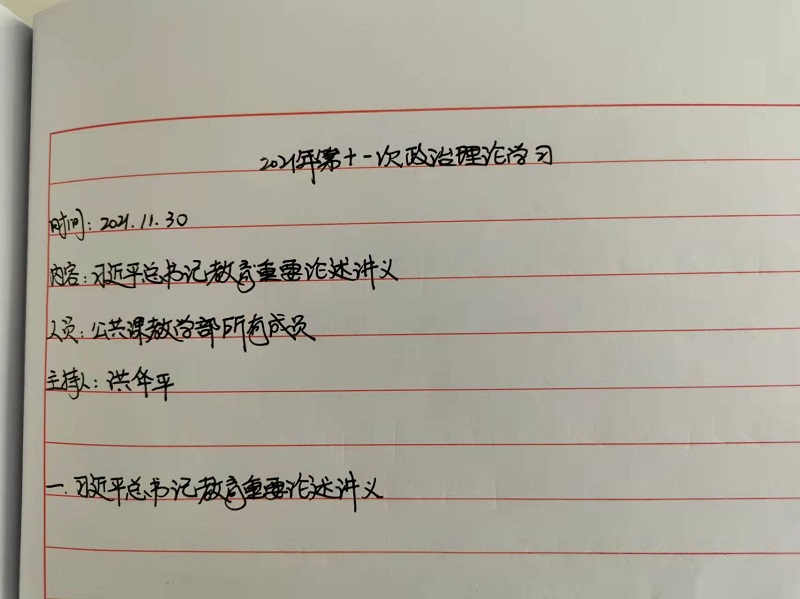 2021年第十一次政治理论学习
时间：2021.11.30
内容：习近平总书记教育重要论述讲义
人员：公共课教学部所有成员
主持人：洪华平
一.习近平总书记教育重要论述讲义